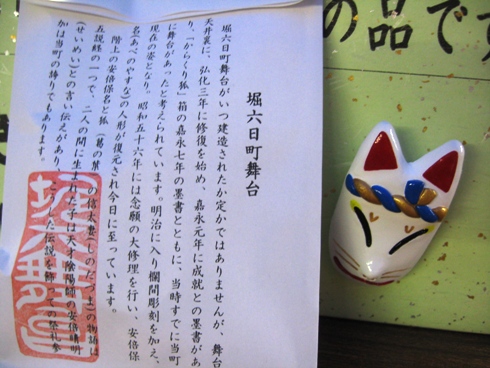 の品です
堀六日町舞台
堀六日町舞台がいつ建造されたか定かではありませんが、舞台
天井裏に、弘化三年に修復を始め、嘉永元年に成就との墨書があ
り、「からくり狐」箱の嘉永七年の墨書とともに、当時すでに当町
に舞台があったと考えられています。明治に入り欄間彫刻を加え、
現在の姿となり。昭和五十六年には念願の大修理を行い、安倍保
名(あべのやすな)の人形が復元され今日に至っています。
階上の安倍保名と狐(葛の葉)の信太妻(しのだづま)の物語は
五説経の一つで、二人の間に生まれた子は天才陰陽師の安倍晴明
(せいめい)との言い伝えがあり、こうした伝説を飾っての祭礼参
加は当町の誇りでもあります。